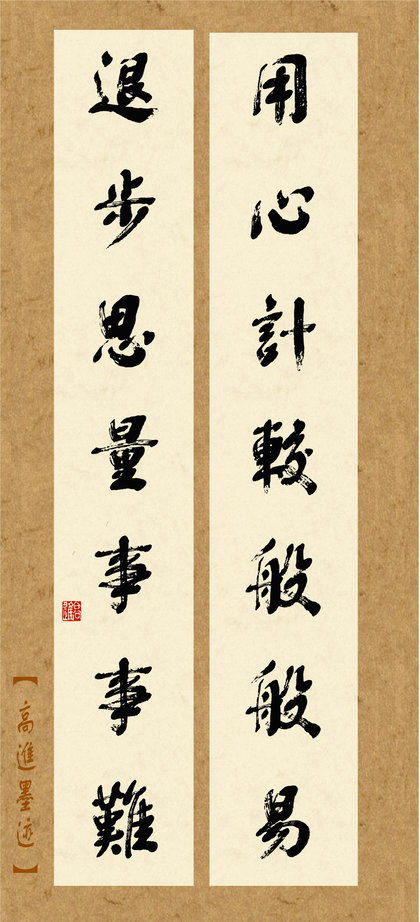 用心計較般般易
退步思量事事難
【高進墨迹】